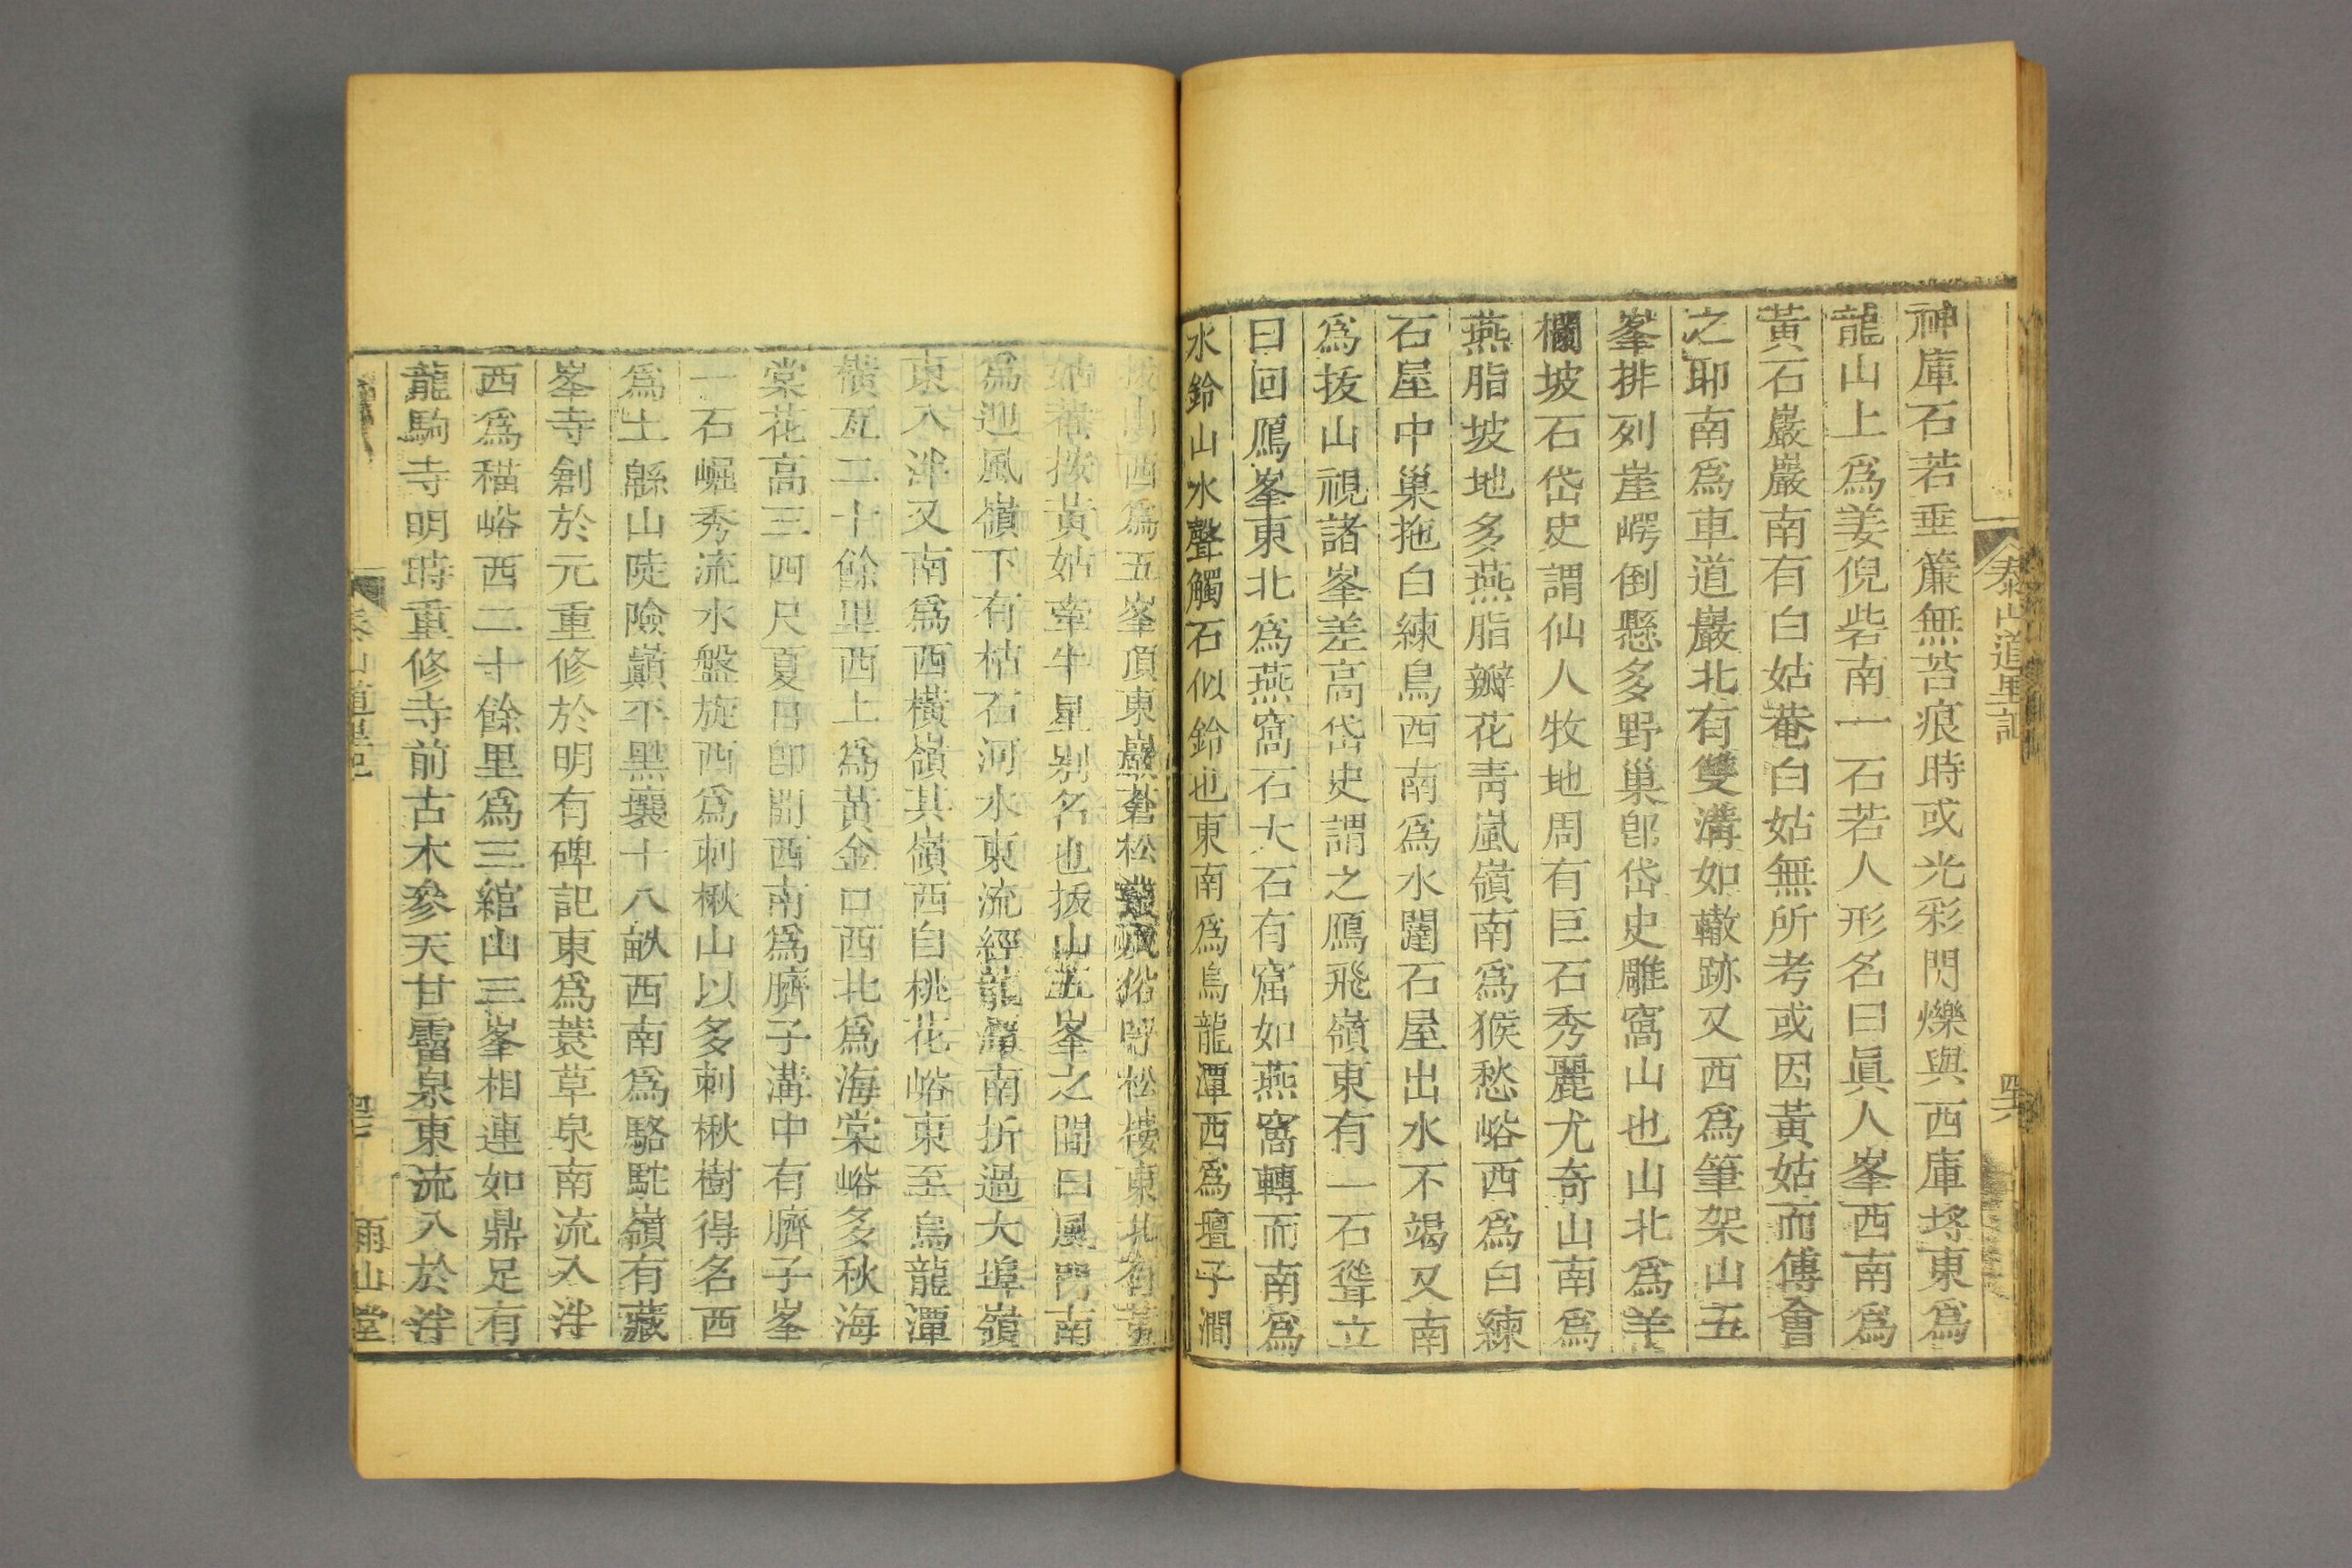 泰山道里記
神庫石若垂簾無苔痕時或光彩閃爍與西庫埒東爲
龍山上爲姜倪砦南一石若人形名曰眞人峯西南爲
黃石巖巖南有白姑菴白姑無所考或因黃姑而傅會
之耶南爲車道巖北有雙溝如轍跡又西爲筆架山五
峯排列崖崿倒懸多野巢卽岱史雕窩山也山北爲羊
欄坡石岱史謂仙人牧地周有巨石秀麗尤奇山南爲
燕脂坡地多燕脂瓣花靑嵐嶺南爲猴愁峪西爲白練
石屋中巢拖白練鳥西南爲水闥石屋出水不竭又南
爲拔山視諸峯差高岱史謂之鴈飛嶺東有一石聳立
曰回鴈峯東北爲燕窩石大石有窟如燕窩轉而南爲
水鈴山水聲觸石似鈴也東南爲烏龍潭西爲壇子澗
拔山西爲五峯頂東巖蒼松俗呼松樓東北有黃
姑菴按黃姑牽牛星別名也拔山五峯之間曰風門南
爲迎風嶺下有枯石河水東流經龍南折過大埠嶺
東入泮又南爲西橫嶺其嶺西自桃花峪東至烏龍潭
橫亙二十餘里西上爲黃金口西北爲海棠峪多秋海
棠花高三四尺夏日卽開西南爲臍子溝中有臍子峯
一石崛秀流水盤旋西爲刺楸山以多刺楸樹得名西
爲土緜山陡險巓平黑壤十八畝西南爲駱駝嶺有藏
峯寺創於元重修於明有碑記東爲蓑草泉南流入泮
西爲稓峪西二十餘里爲三綰山三峯相連如鼎足有
龍駒寺明時重修寺前古木參天甘露泉東流入於泮
泰山道里記
雨山堂